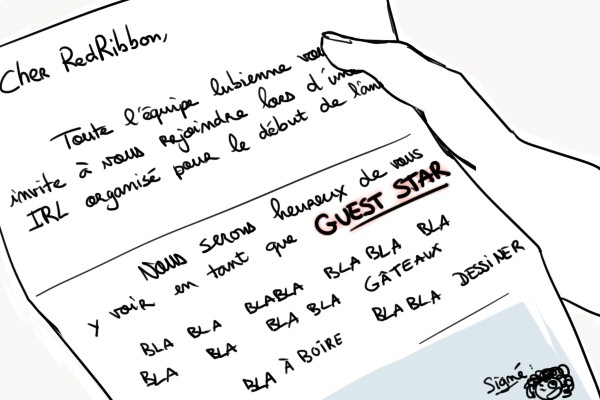 Cher RedRibbon,
Toute l'équipe lubienne
invite à nous rejoindre lors d'une
IRL organisé pour le début de l'an
Nous serons heureux de vous
y voir en tant que GUEST STAR
BLA BLA BLABLA BLA BLA BLA
BLA BLA BLA BLA GÂTEAUX
BLA À BOIRE BLABLA DESSINER
Signé :